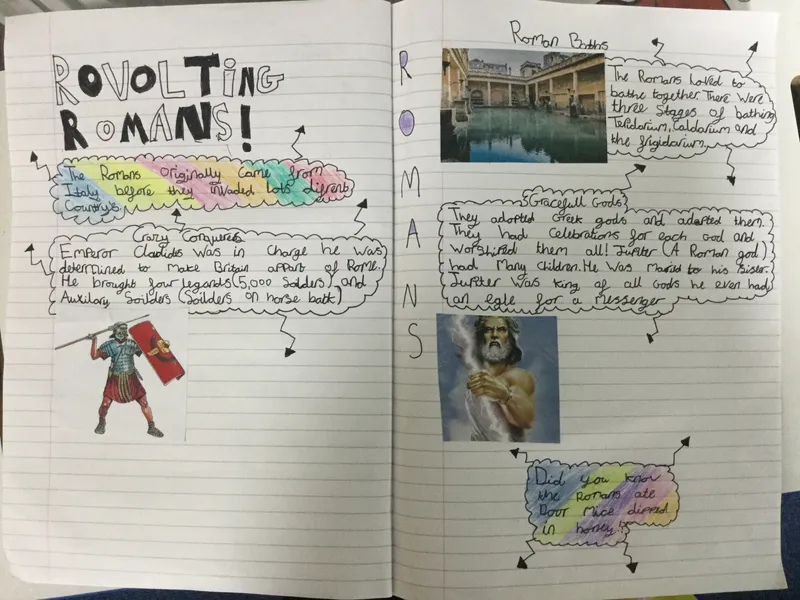 ROVOLTiNG
ROMANS!
The Romans Originally came from
Italy before they invaded lots difrent
Country's
Crazy Conquerers
Emperor Claudids was in Charge he was
determined to make Britain appart of Rome.
He brought four legands (5,000 Solders) and
Auxilary Soilders (Soilders on horse back)
ROMANS
Roman Baths
The Romans loved to
bathe together. There were
three Stages of bathing
Tepidarium, Caldarium and
the frigidarium.
Gracefull Gods
They adopted Greek gods and adapted them.
They had Celebrations for each God and
Worshiped them all! Jupiter (A Roman god)
had Many Children. He Was Maried to his Sister.
Jupiter Was King of all Gods he even had
an egle for a messenger
Did you know
the Romans ate
Door Mice dipped
in honey!?